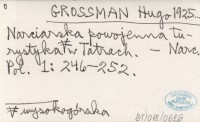 0
GROSSMAN Hugo 1925...
Narciarska powojenna tu-
rystyka # w Tatrach. - Narc.
Pol. 1: 246-252.
# wysokogórska